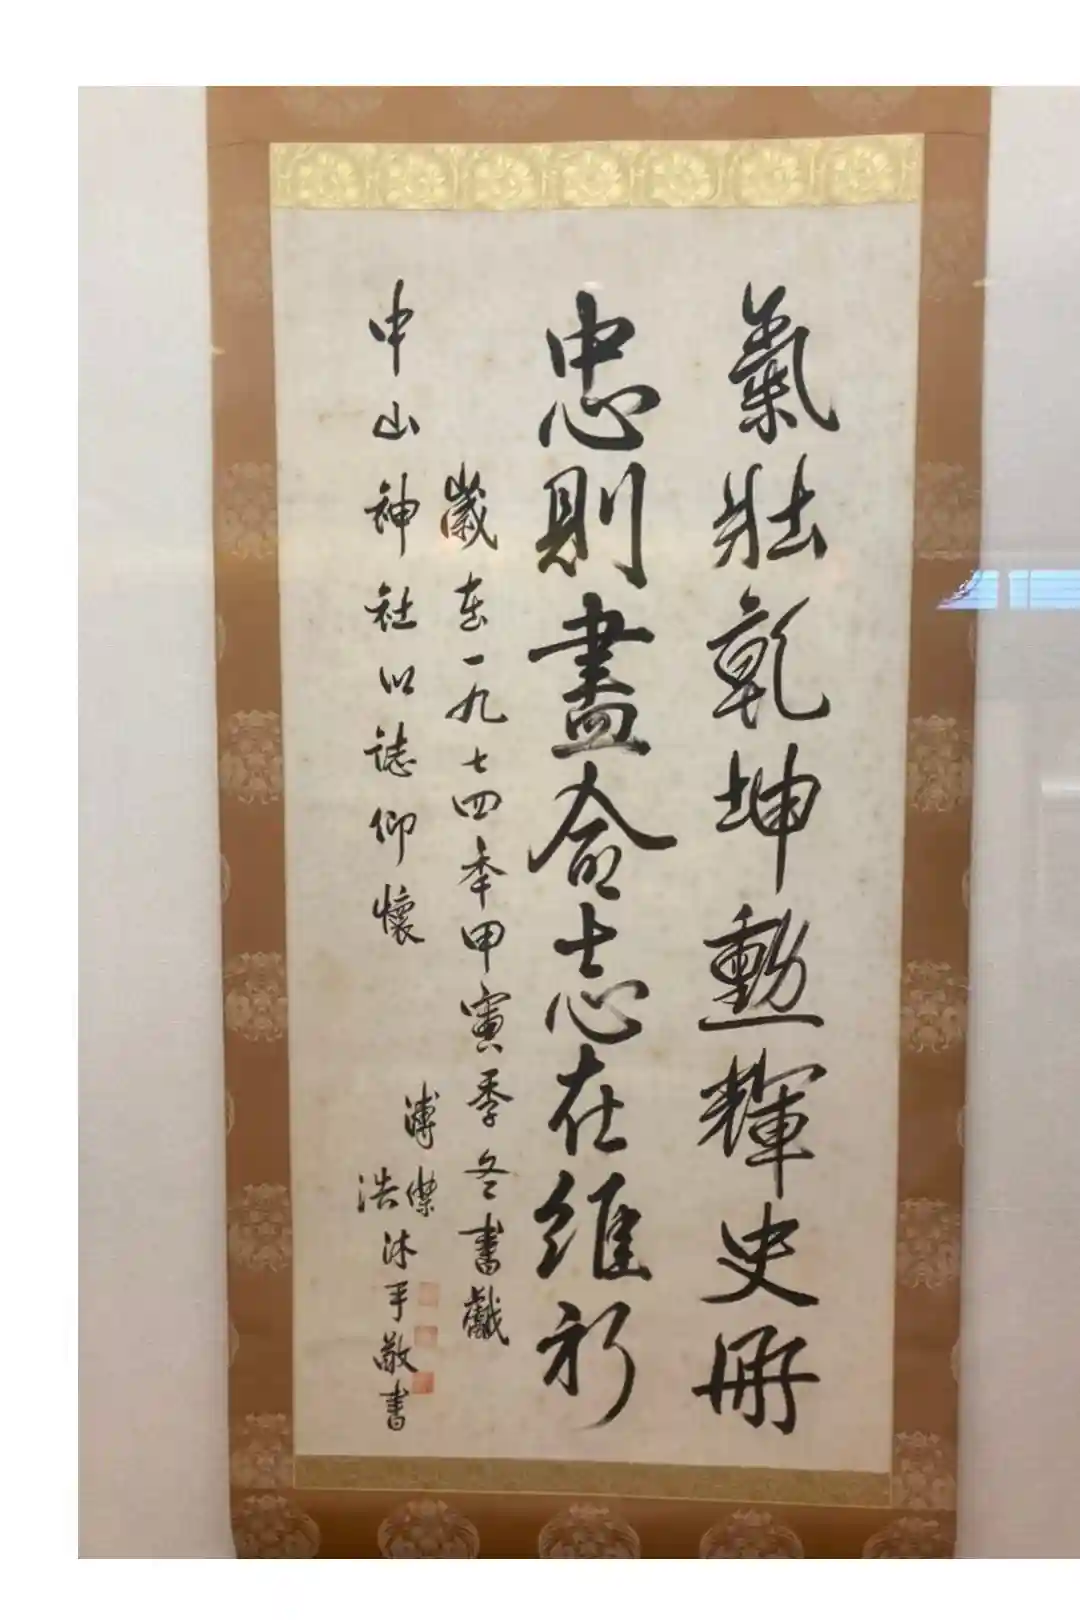 氣壯乾坤勳輝史冊
忠則盡命志在維新
歲在一九七四年甲寅季冬書獻
中山神社以誌仰懷
溥傑
浩沐手敬書